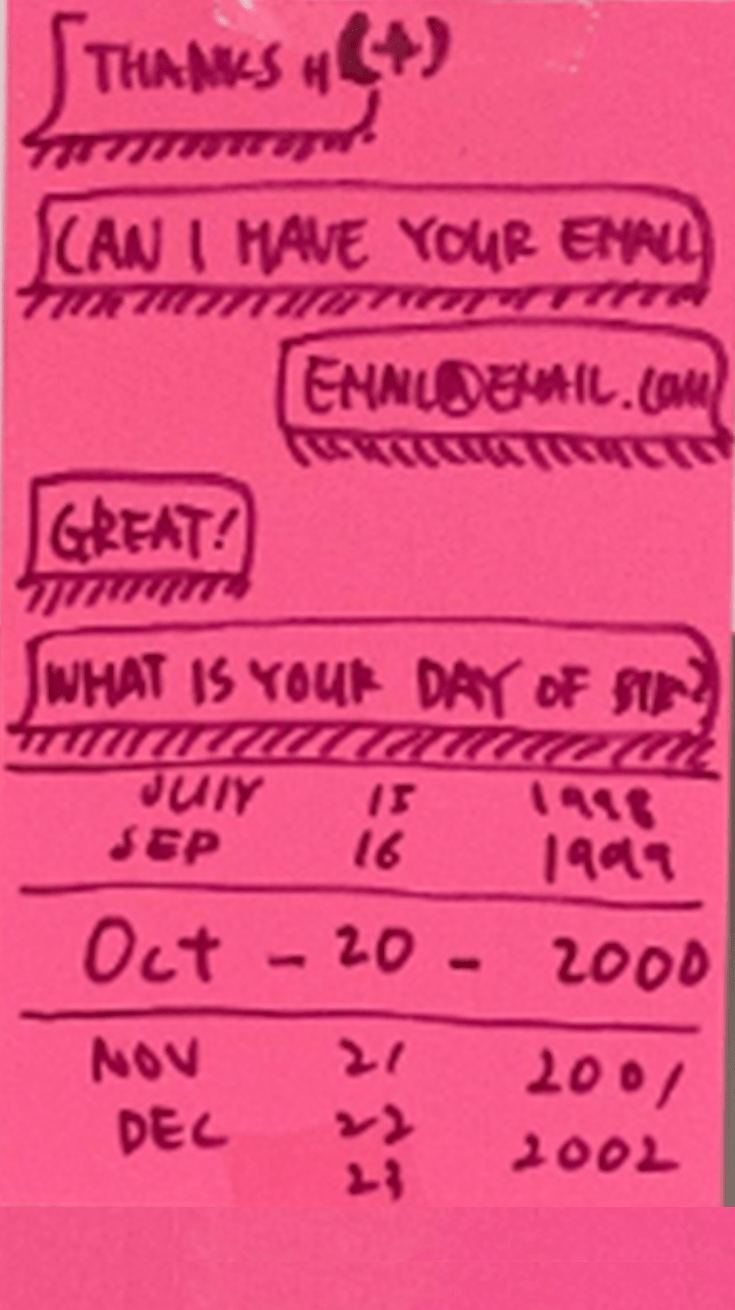 THANKS H (+)
CAN I HAVE YOUR EMAIL
EMAIL@EMAIL.COM
GREAT!
WHAT IS YOUR DAY OF
JULY 15 1998
SEP 16 1999
Oct - 20 - 2000
NOV 21 2001
DEC 22 2002
23